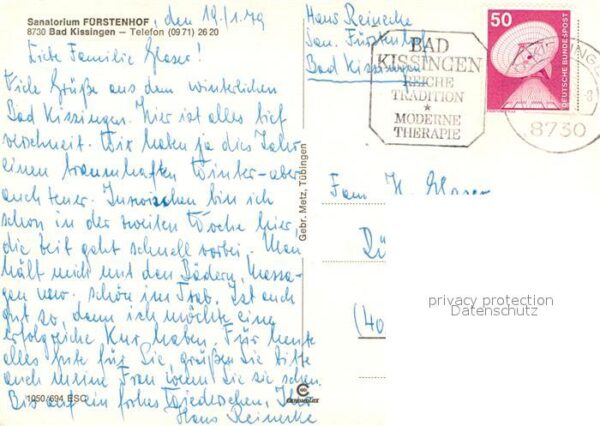 Sanatorium FÜRSTENHOF, den 19/1.79
8730 Bad Kissingen – Telefon (09 71) 26 20
Liebe Familie Glaser!
Viele Grüße aus dem winterlichen
Bad Kissingen. Hier ist alles tief
verschneit. Wir haben ja dies Jahr
einen traumhaften Winter - aber
auch teuer. Inzwischen bin ich
schon in der zweiten Woche hier -
die Zeit geht schnell vorbei. Man
hält mich mit den Bädern, Massa-
gen usw. schön im Trab. Ist auch
gut so, denn ich möchte eine
erfolgreiche Kur haben. Für heute
alles Gute für Sie, grüßen Sie bitte
auch meine Frau wenn Sie sie sehen.
Bis auf ein frohes Wiedersehen, Ihr
Hans Reinecke
1050/694 ESC
Gebr. Metz, Tübingen
Hans Reinecke
San. Fürstenhof
Bad Kissingen
BAD
KISSINGEN
REICHE
TRADITION
*
MODERNE
THERAPIE
50
DEUTSCHE BUNDESPOST
8730
Fam. H. Glaser
Dü
(40
privacy protection
Datenschutz